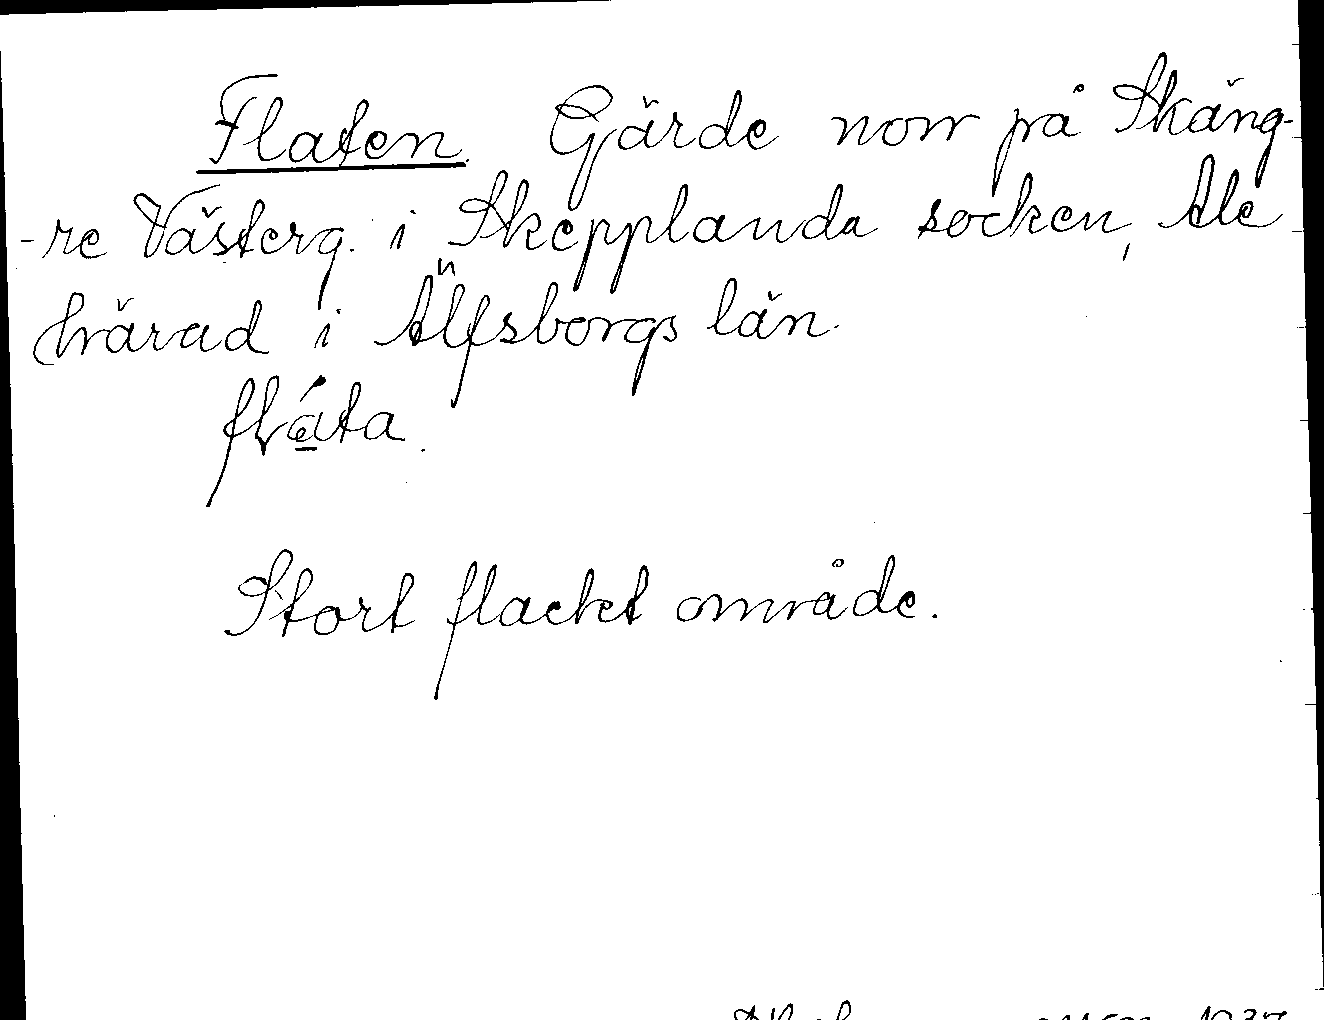 Flaten. Gärde norr på Skäng-
-re Västerg. i Skepplanda socken, Ale
härad i Älfsborgs län.
fláta.
Stort flackt område.
1937